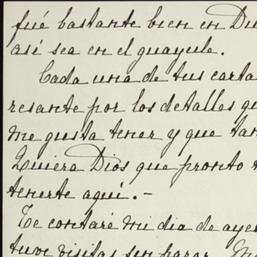 fué bastante bien en Du
así sea en el guayule.
Cada una de tus carta
resante por los detalles qu
me gusta tener y que tan
Quiera Dios que pronto
tenerte aquí.-
Te contaré mi dia de aye
tuve visitas sin parar.